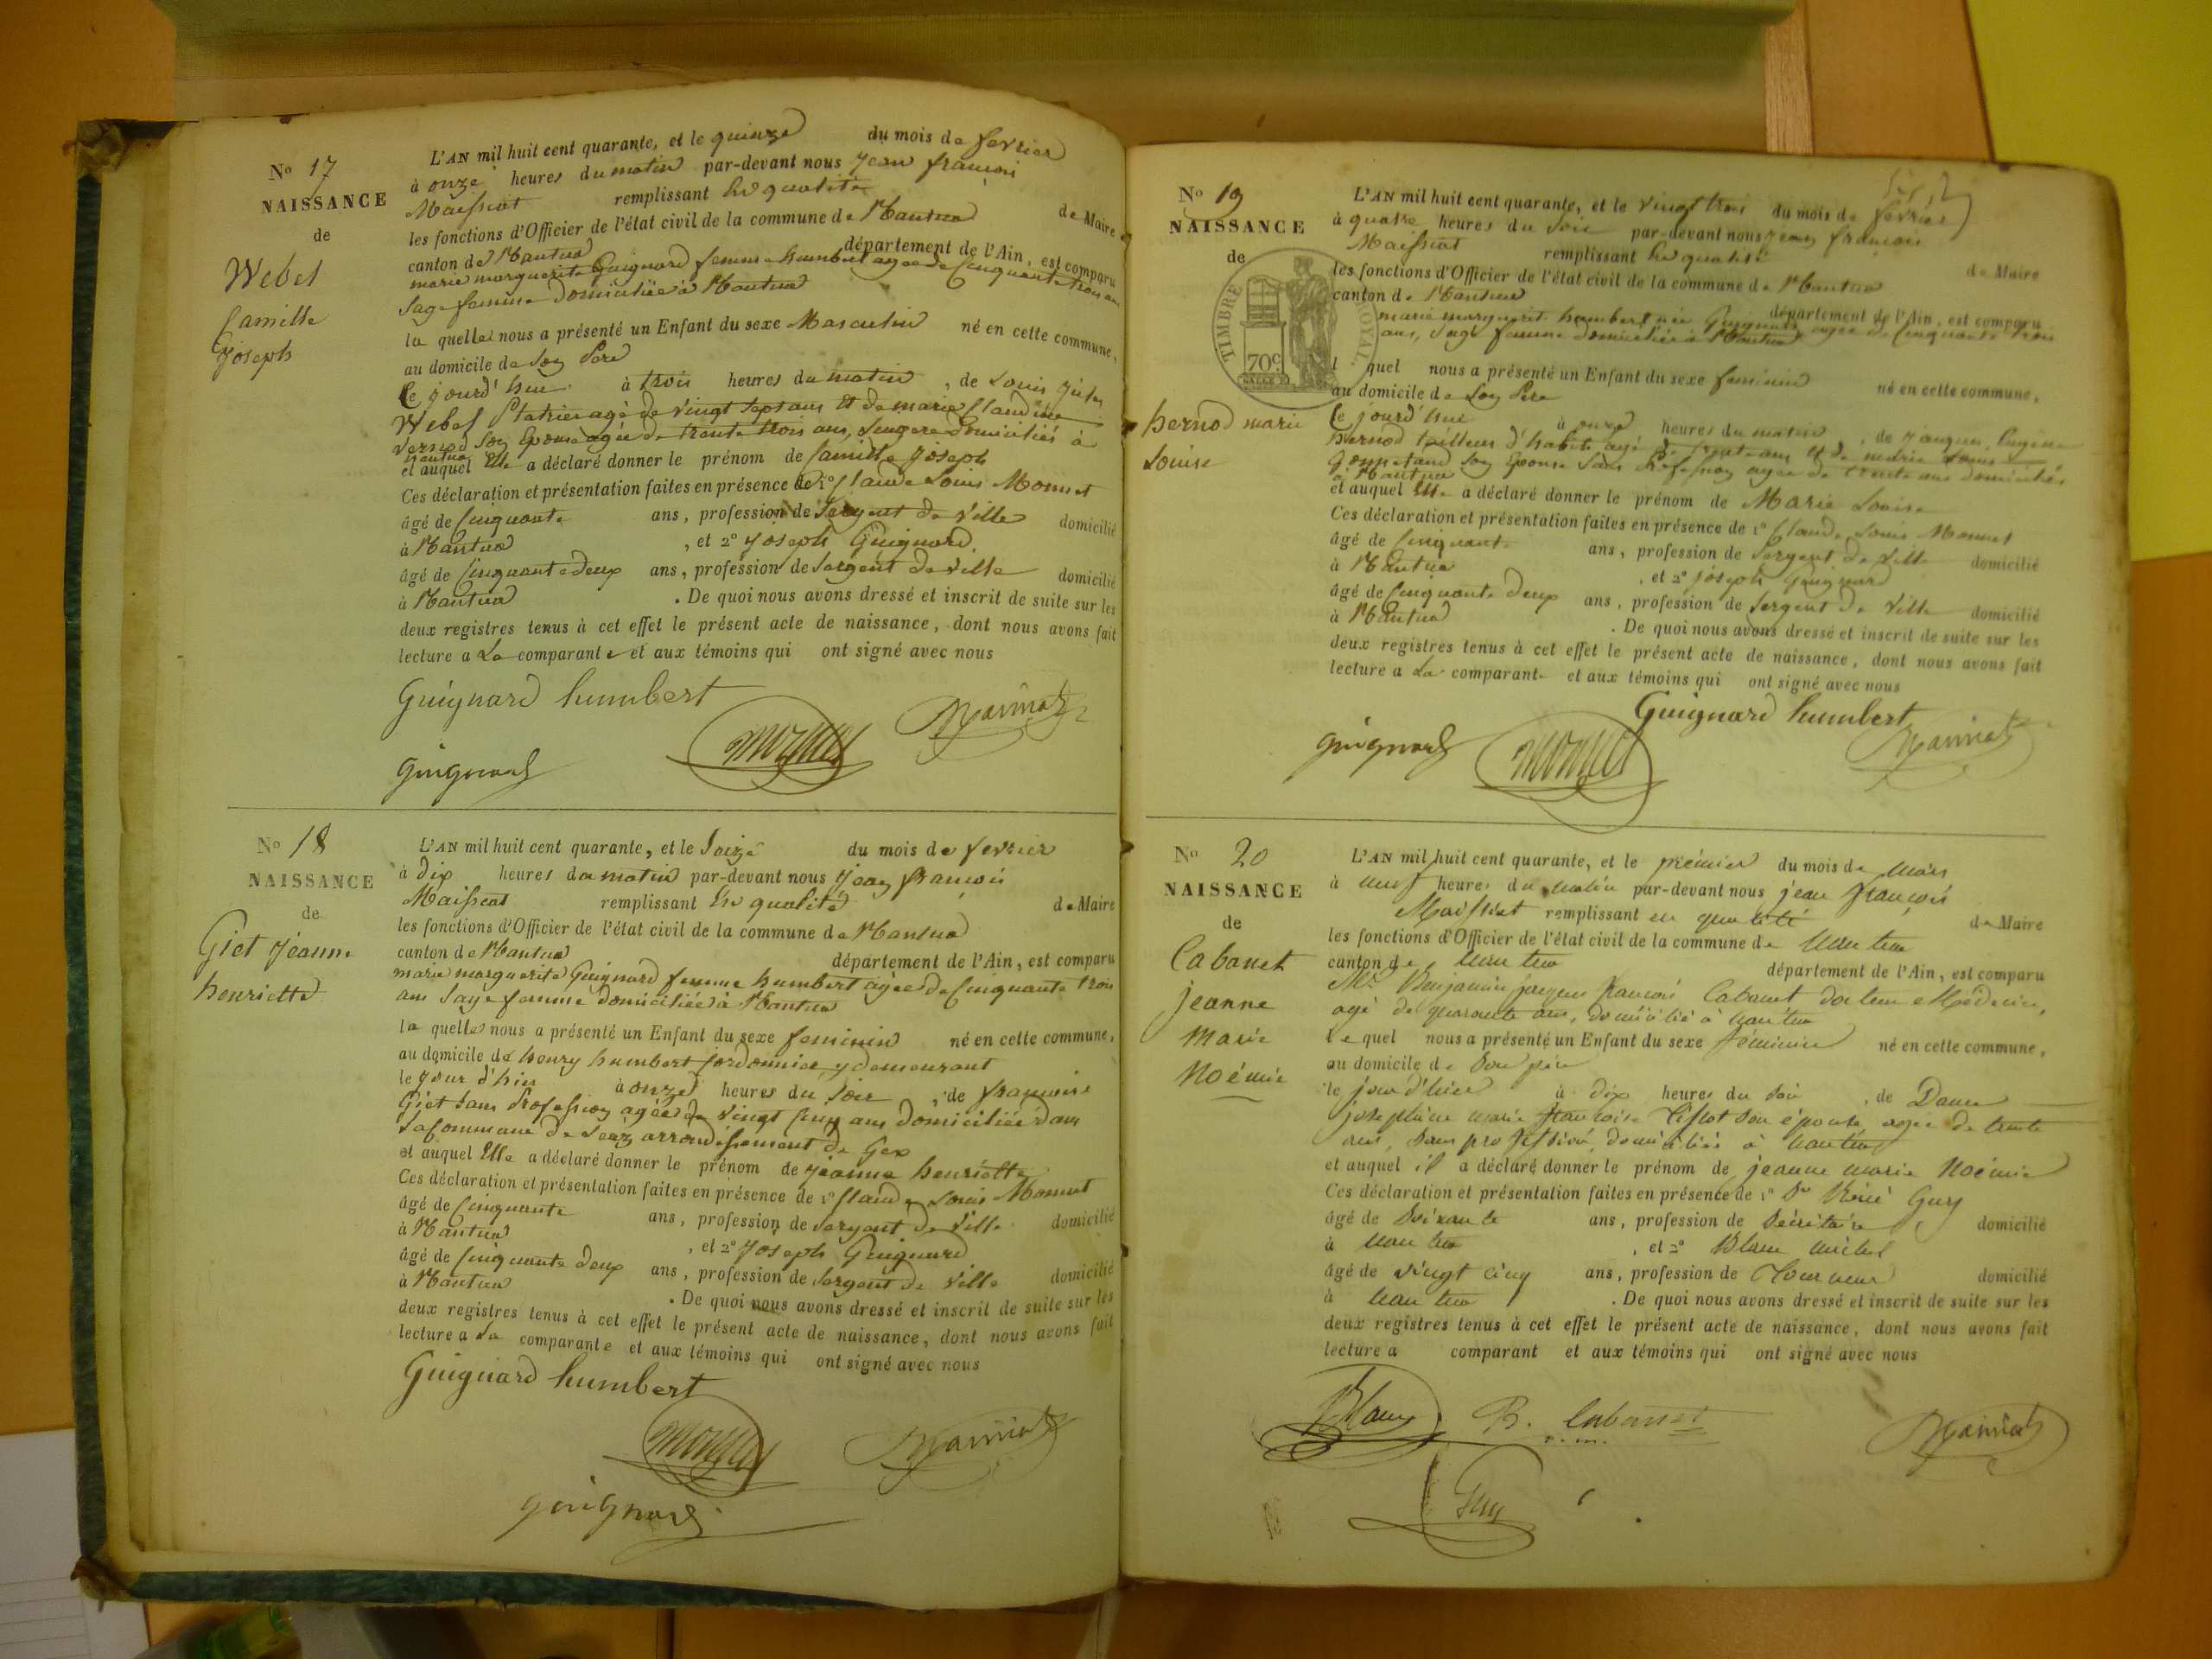 No 17
NAISSANCE
de
Webel
Camille
Joseph
L'AN mil huit cent quarante, et le quinze du mois de fevrier
à onze heures du matin par-devant nous Jean françois
Maissiat remplissant de Maire
les fonctions d'Officier de l'état civil de la commune de Nantua
canton de Nantua département de l'Ain, est comparu
marie marguerite Guignard femme humbert agée de Cinquante trois ans
Sage femme domiciliée à Nantua
la quelle nous a présenté un Enfant du sexe Masculin né en cette commune,
au domicile de Son Pere
Ce jourd'hui à trois heures du matin, de Louis Jules
Webel Platrier agé de vingt sept ans et de marie Claudine
Vernod Son Epouse agée de trente trois ans, Lingere domiciliés à
Nantua
et auquel Elle a déclaré donner le prénom de Camille Joseph
Ces déclaration et présentation faites en présence de 1o Claude Louis Monnet
âgé de Cinquante ans, profession de Sergent de Ville domicilié
à Nantua, et 2o Joseph Guignard
âgé de Cinquante deux ans, profession de Sergent de Ville domicilié
à Nantua. De quoi nous avons dressé et inscrit de suite sur les
deux registres tenus à cet effet le présent acte de naissance, dont nous avons fait
lecture a La comparante et aux témoins qui ont signé avec nous
Guignard humbert
Monnet Maissiat
Guignard
No 18
NAISSANCE
de
Giet Jeanne
henriette
L'AN mil huit cent quarante, et le Seize du mois de fevrier
à dix heures du matin par-devant nous Jean françois
Maissiat remplissant de Maire
les fonctions d'Officier de l'état civil de la commune de Nantua
canton de Nantua département de l'Ain, est comparu
marie marguerite Guignard femme humbert agée de Cinquante trois
ans Sage femme domiciliée à Nantua
la quelle nous a présenté un Enfant du sexe feminin né en cette commune,
au domicile de henry humbert Cordonnier y demeurant
le jour d'hier à onze heures du Soir, de françoise
Giet Sans Profession agée de vingt Cinq ans domiciliée dans
la Commune de arrondissement de Gex
et auquel Elle a déclaré donner le prénom de Jeanne henriette
Ces déclaration et présentation faites en présence de 1o Claude Louis Monnet
âgé de Cinquante ans, profession de Sergent de Ville domicilié
à Nantua, et 2o Joseph Guignard
âgé de Cinquante deux ans, profession de Sergent de Ville domicilié
à Nantua. De quoi nous avons dressé et inscrit de suite sur les
deux registres tenus à cet effet le présent acte de naissance, dont nous avons fait
lecture a La comparante et aux témoins qui ont signé avec nous
Guignard humbert
Monnet Maissiat
Guignard
No 19
NAISSANCE
de
TIMBRE ROYAL
70c
hernod marie
Louise
L'AN mil huit cent quarante, et le vingt trois du mois de fevrier
à quatre heures du Soir par-devant nous Jean françois
Maissiat remplissant de Maire
les fonctions d'Officier de l'état civil de la commune de Nantua
canton de Nantua département de l'Ain, est comparu
marie marguerite humbert née Guignard agée de Cinquante trois
ans, Sage femme domiciliée à Nantua
l quel nous a présenté un Enfant du sexe feminin né en cette commune,
au domicile de Son Pere
Ce jourd'hui à onze heures du matin, de Eugene
hernod tailleur d'habits agé de trente ans et de marie Louise
Son Epouse Sans Profession agée de trente ans domiciliés
à Nantua
et auquel Elle a déclaré donner le prénom de Marie Louise
Ces déclaration et présentation faites en présence de 1o Claude Louis Monnet
âgé de Cinquante ans, profession de Sergent de Ville domicilié
à Nantua, et 2o Joseph Guignard
âgé de Cinquante deux ans, profession de Sergent de Ville domicilié
à Nantua. De quoi nous avons dressé et inscrit de suite sur les
deux registres tenus à cet effet le présent acte de naissance, dont nous avons fait
lecture a La comparante et aux témoins qui ont signé avec nous
Guignard humbert
Guignard Monnet Maissiat
No 20
NAISSANCE
de
Cabanet
jeanne
Marie
Noémie
L'AN mil huit cent quarante, et le premier du mois de Mars
à neuf heures du matin par-devant nous jean françois
Maissiat remplissant en qualité de Maire
les fonctions d'Officier de l'état civil de la commune de Nantua
canton de Nantua département de l'Ain, est comparu
Mr Benjamin françois Cabanet docteur Médecin,
agé de quarante ans, domicilié à Nantua
le quel nous a présenté un Enfant du sexe féminin né en cette commune,
au domicile de Son père
le jour d'hier à dix heures du Soir, de Dame
joséphine Marie françoise Son épouse agée de trente
ans, sans profession, domiciliée à Nantua
et auquel il a déclaré donner le prénom de jeanne Marie Noémie
Ces déclaration et présentation faites en présence de 1o Sr Guy
âgé de soixante ans, profession de Sécrétaire domicilié
à Nantua, et 2o Blanc Michel
âgé de vingt cinq ans, profession de Tourneur domicilié
à Nantua. De quoi nous avons dressé et inscrit de suite sur les
deux registres tenus à cet effet le présent acte de naissance, dont nous avons fait
lecture a comparant et aux témoins qui ont signé avec nous
Blanc B. Cabanet Maissiat
Guy